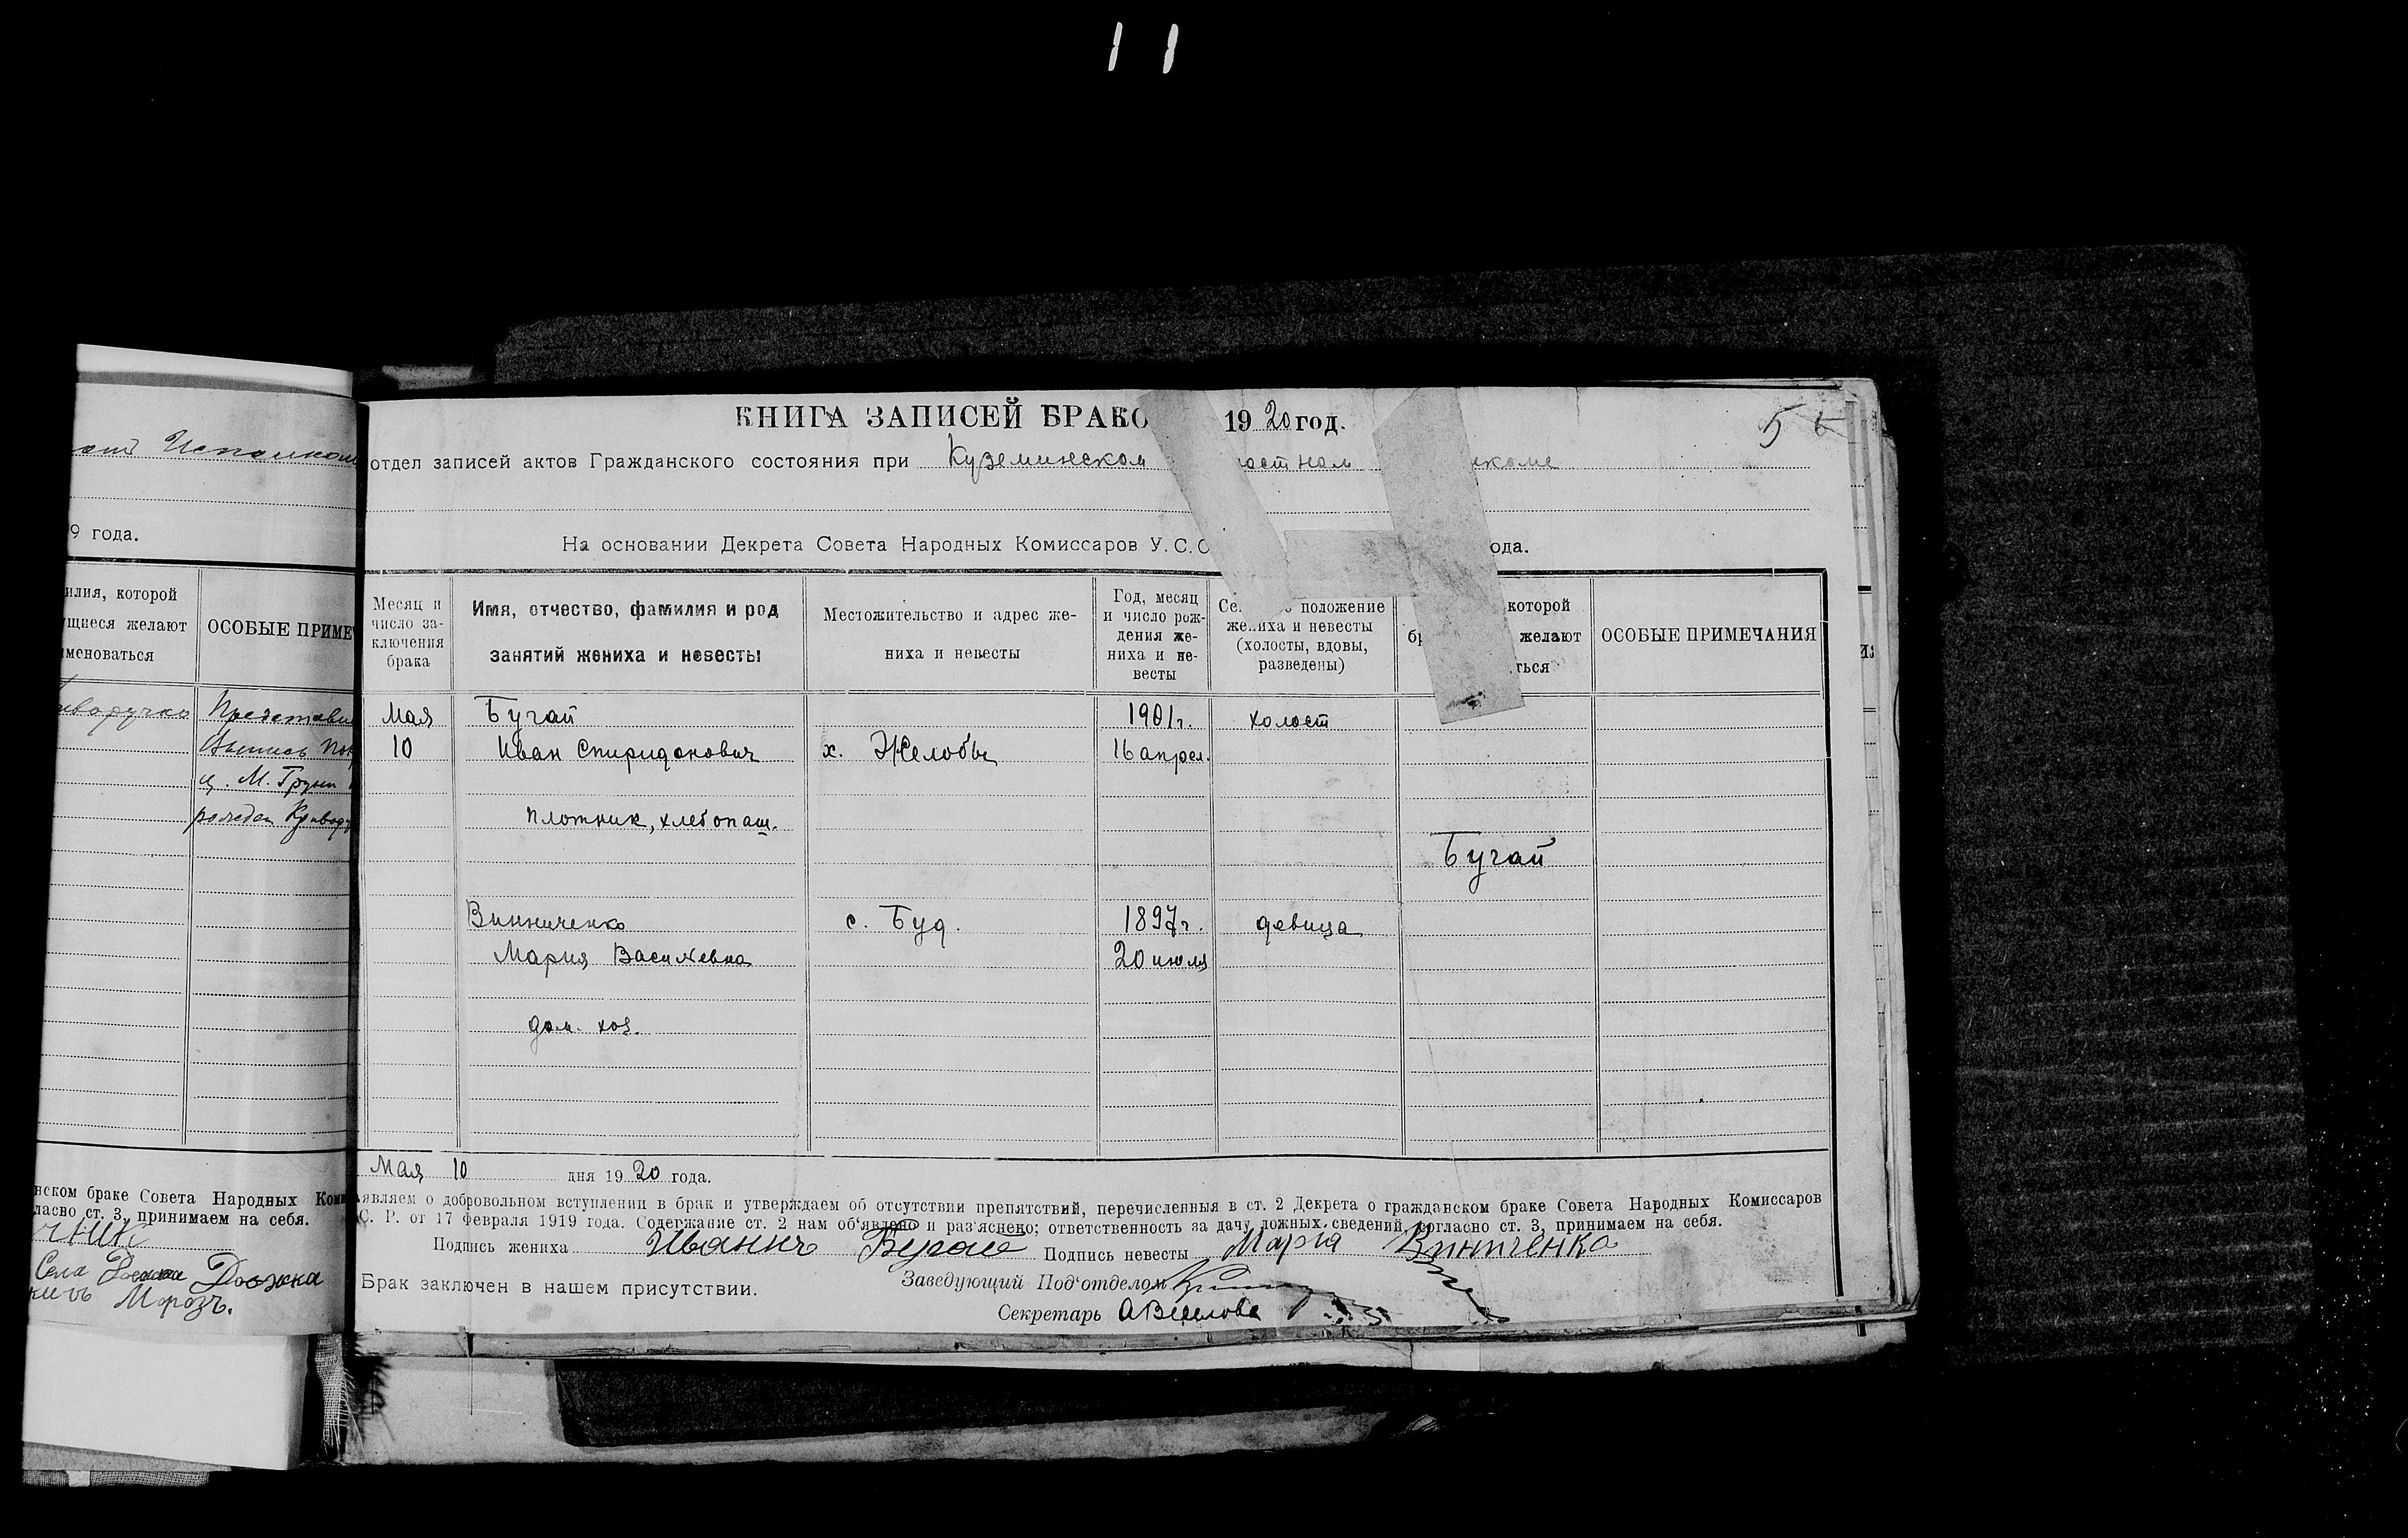 11
КНИГА ЗАПИСЕЙ БРАКО 1920 год.
5
отдел записей актов Гражданского состояния при Куземинском ностном нкоме
На основании Декрета Совета Народных Комиссаров У.С.С ода.
Месяц и число заключения брака
Имя, отчество, фамилия и род занятий жениха и невесты
Местожительство и адрес жениха и невесты
Год, месяц и число рождения жениха и невесты
Се положение жениха и невесты (холосты, вдовы, разведены)
которой бр желают ться
ОСОБЫЕ ПРИМЕЧАНИЯ
Мая Бугай 1901 г. холост
10 Иван Спиридонович х. Желобы 16 апрел.
плотник, хлебопаш.
Бугай
Винниченко с. Буд. 1897 г. девица
Мария Василевна 20 июля
дом. хоз.
Мая 10 дня 1920 года.
являем о добровольном вступлении в брак и утверждаем об отсутствии препятствий, перечисленныя в ст. 2 Декрета о гражданском браке Совета Народных Комиссаров
С. Р. от 17 февраля 1919 года. Содержание ст. 2 нам об'явлено и раз'яснено; ответственность за дачу ложных сведений, согласно ст. 3, принимаем на себя.
Подпись жениха Иванъ Бугай Подпись невесты Марія Винниченко
Брак заключен в нашем присутствии. Заведующий Под'отделом
Секретарь
Исполком
9 года.
илия, которой
щиеся желают
именоваться
ОСОБЫЕ ПРИМЕЧ
иворучко Представи
ц. М. Груни
нском браке Совета Народных Коми
ласно ст. 3, принимаем на себя.
чник
Села Должка
Морозъ.